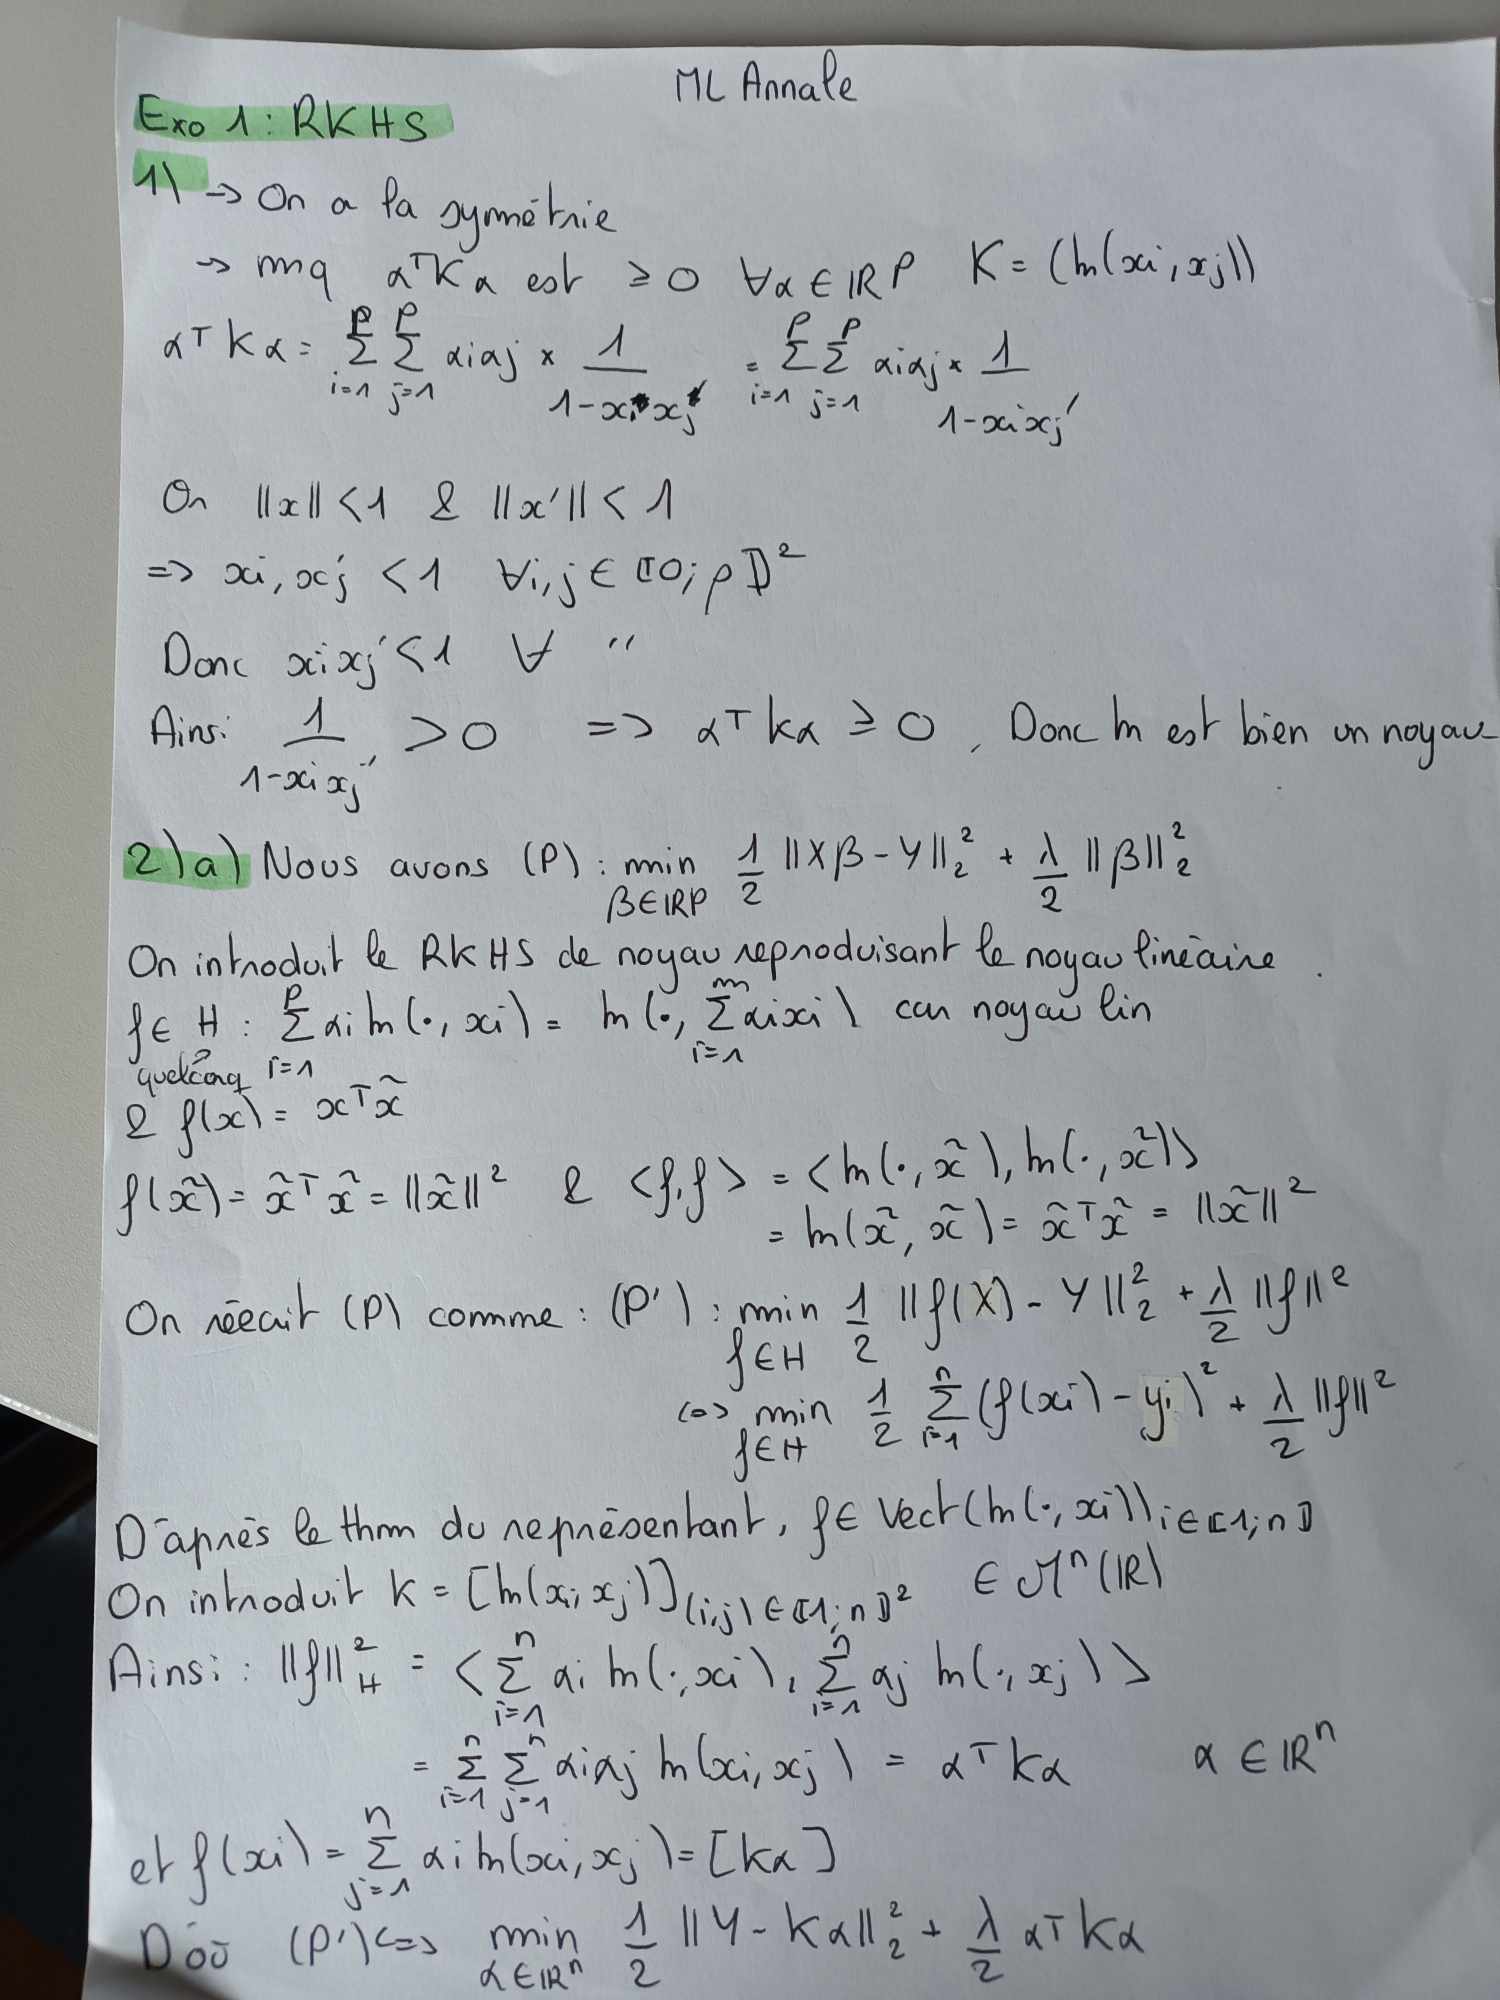 ML Annale
Exo 1 : RKHS
1) → On a la symétrie
→ mq αᵀKα est ≥ 0 ∀α ∈ IRᵖ K = (k(xi, xj))
αᵀKα = Σ_{i=1}^{p} Σ_{j=1}^{p} αiαj × 1/(1-xi xj') = Σ_{i=1}^{p} Σ_{j=1}^{p} αiαj × 1/(1-xi xj')
On ||x|| < 1 & ||x'|| < 1
=> xi, xj' < 1 ∀i,j ∈ ⟦0; p⟧²
Donc xi xj' < 1 ∀ "
Ainsi 1/(1-xi xj') > 0 => αᵀKα ≥ 0, Donc k est bien un noyau
2) a) Nous avons (P) : min_{β∈IRᵖ} 1/2 ||Xβ - Y||₂² + λ/2 ||β||₂²
On introduit le RKHS de noyau reproduisant le noyau linéaire.
f ∈ H : Σ_{i=1}^{p} αi k(·, xi) = k(·, Σ_{i=1}^{m} αi xi) car noyau lin
quelconq
& f(x) = xᵀx̃
f(x̃) = x̃ᵀx̃ = ||x̃||² & <f,f> = <k(·, x̃), k(·, x̃)>
= k(x̃, x̃) = x̃ᵀx̃ = ||x̃||²
On réécrit (P) comme : (P') : min_{f∈H} 1/2 ||f(X) - Y||₂² + λ/2 ||f||²
<=> min_{f∈H} 1/2 Σ_{i=1}^{n} (f(xi) - yi)² + λ/2 ||f||²
D'après le thm du représentant, f ∈ Vect(k(·, xi))_{i∈⟦1;n⟧}
On introduit K = [k(xi, xj)]_{(i,j)∈⟦1;n⟧²} ∈ Mⁿ(IR)
Ainsi : ||f||²_H = <Σ_{i=1}^{n} αi k(·, xi), Σ_{i=1}^{n} αj k(·, xj)>
= Σ_{i=1}^{n} Σ_{j=1}^{n} αiαj k(xi, xj) = αᵀKα α ∈ IRⁿ
et f(xi) = Σ_{j=1}^{n} αi k(xi, xj) = [Kα]
D'où (P') <=> min_{α∈IRⁿ} 1/2 ||Y - Kα||₂² + λ/2 αᵀKα